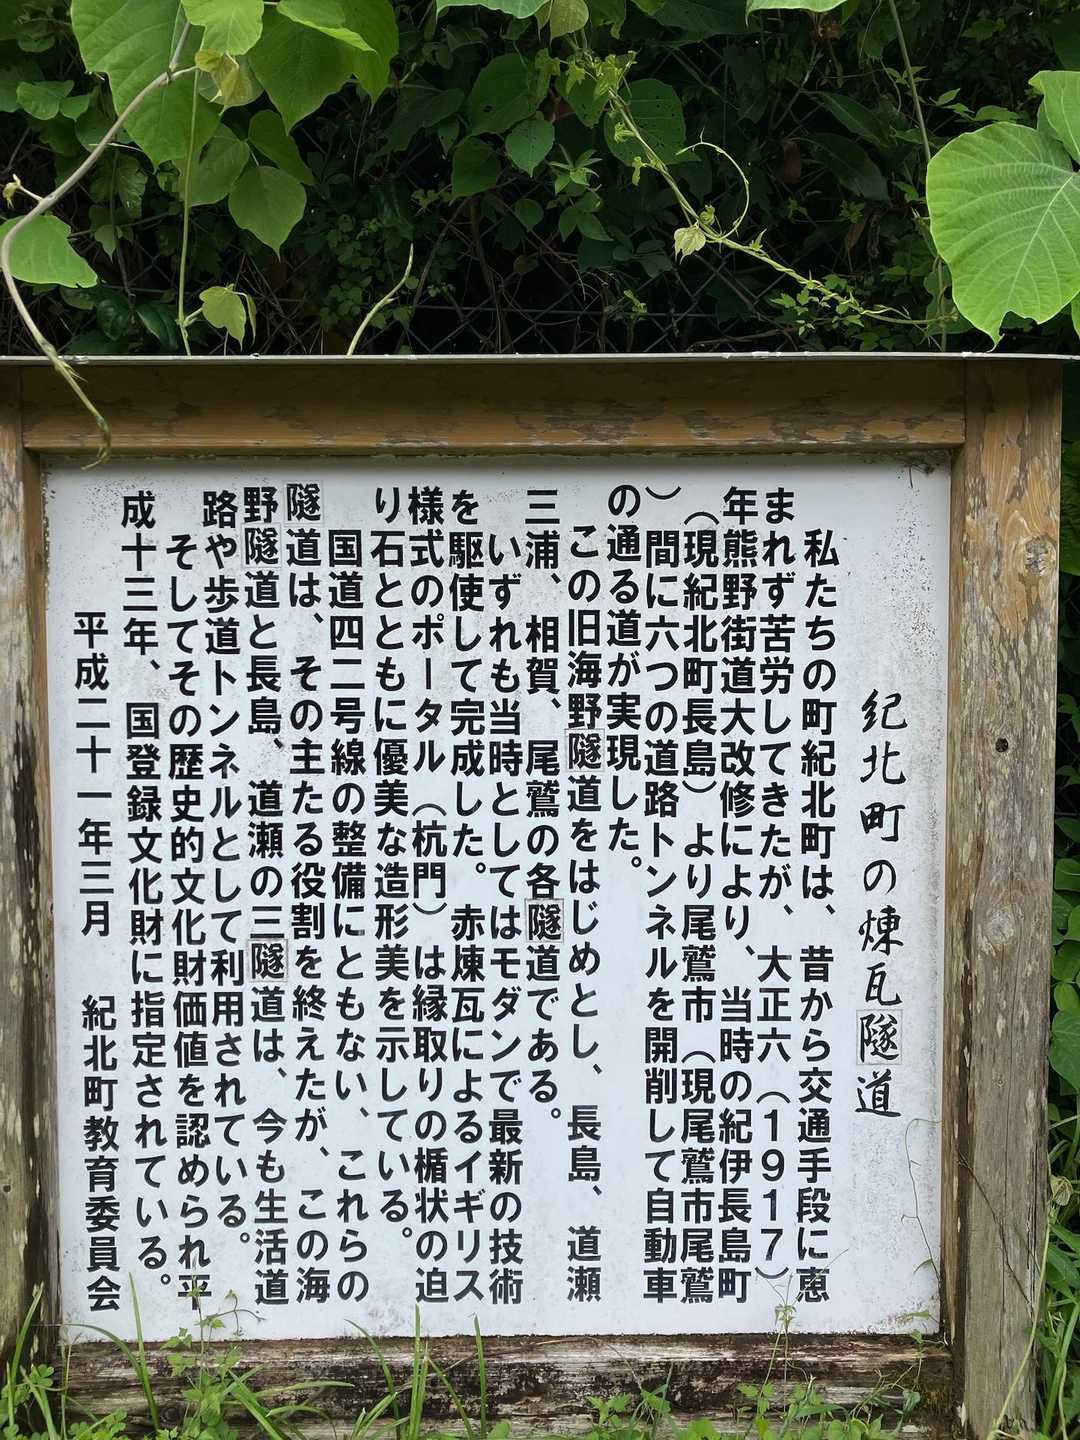 紀北町の煉瓦隧道
私たちの町紀北町は、昔から交通手段に恵
まれず苦労してきたが、大正六（１９１７）
年熊野街道大改修により、当時の紀伊長島町
（現紀北町長島）より尾鷲市（現尾鷲市尾鷲
）間に六つの道路トンネルを開削して自動車
の通る道が実現した。
この旧海野隧道をはじめとし、長島、道瀬
三浦、相賀、尾鷲の各隧道である。
いずれも当時としてはモダンで最新の技術
を駆使して完成した。赤煉瓦によるイギリス
様式のポータル（杭門）は縁取りの楯状の迫
り石とともに優美な造形美を示している。
国道四二号線の整備にともない、これらの
隧道は、その主たる役割を終えたが、この海
野隧道と長島、道瀬の三隧道は、今も生活道
路や歩道トンネルとして利用されている。
そしてその歴史的文化財価値を認められ平
成十三年、国登録文化財に指定されている。
平成二十一年三月　紀北町教育委員会